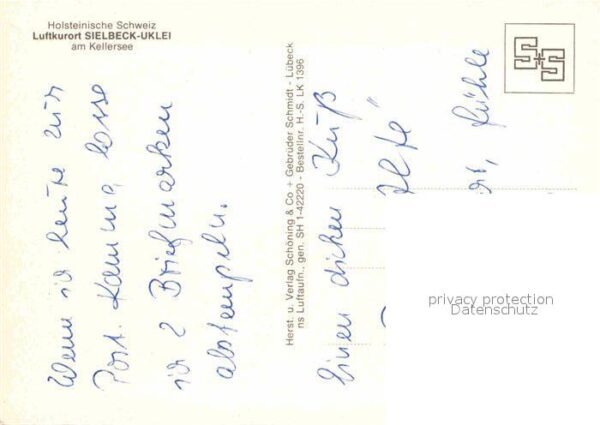 Holsteinische Schweiz
Luftkurort SIELBECK-UKLEI
am Kellersee
Wenn ich heute zur
Post komme, lasse
ich 2 Briefmarken
abstempeln.
Herst. u. Verlag Schöning & Co + Gebrüder Schmidt - Lübeck
ns Luftaufn., gen. SH 1-42220 - Bestellnr. H. S. LK 1396
Einen dicken Kuß
privacy protection
Datenschutz